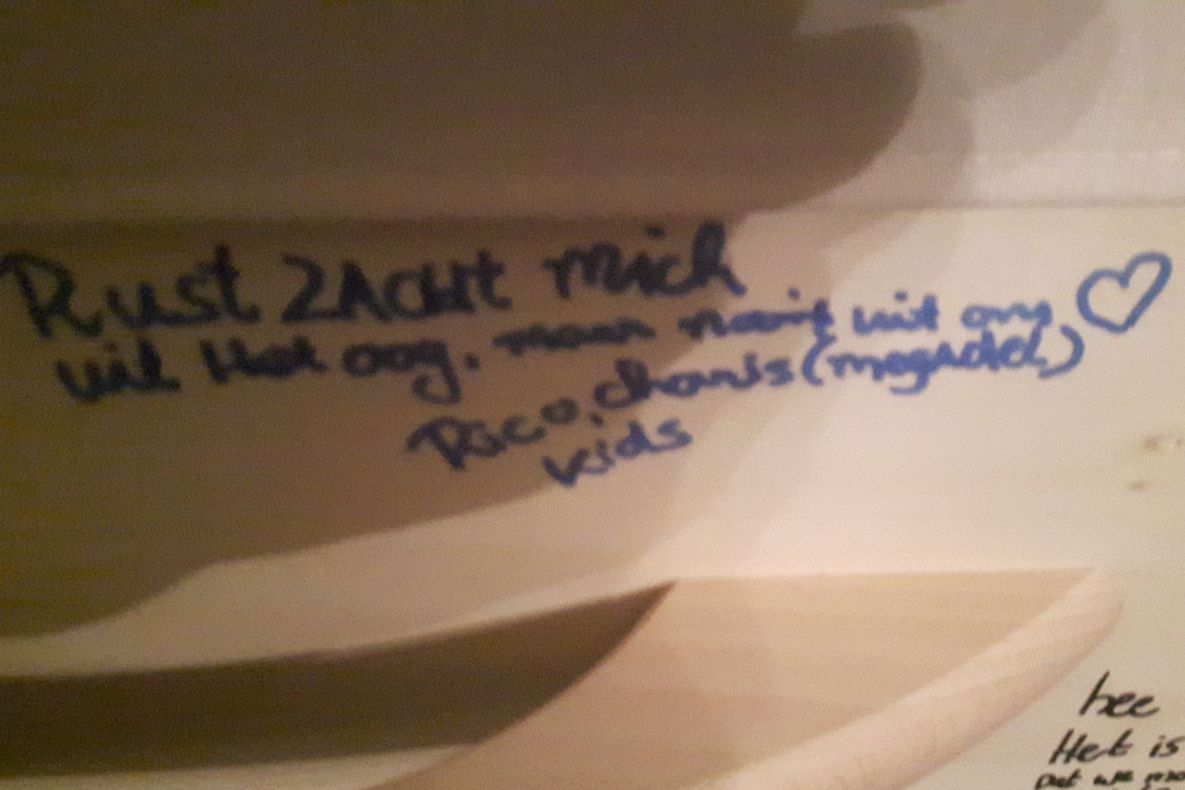 Rust ZACHT Mich
uit Het oog, maar nooit uit ons
Rico, charis (megadel)
kids
hee
Het is
Dat we